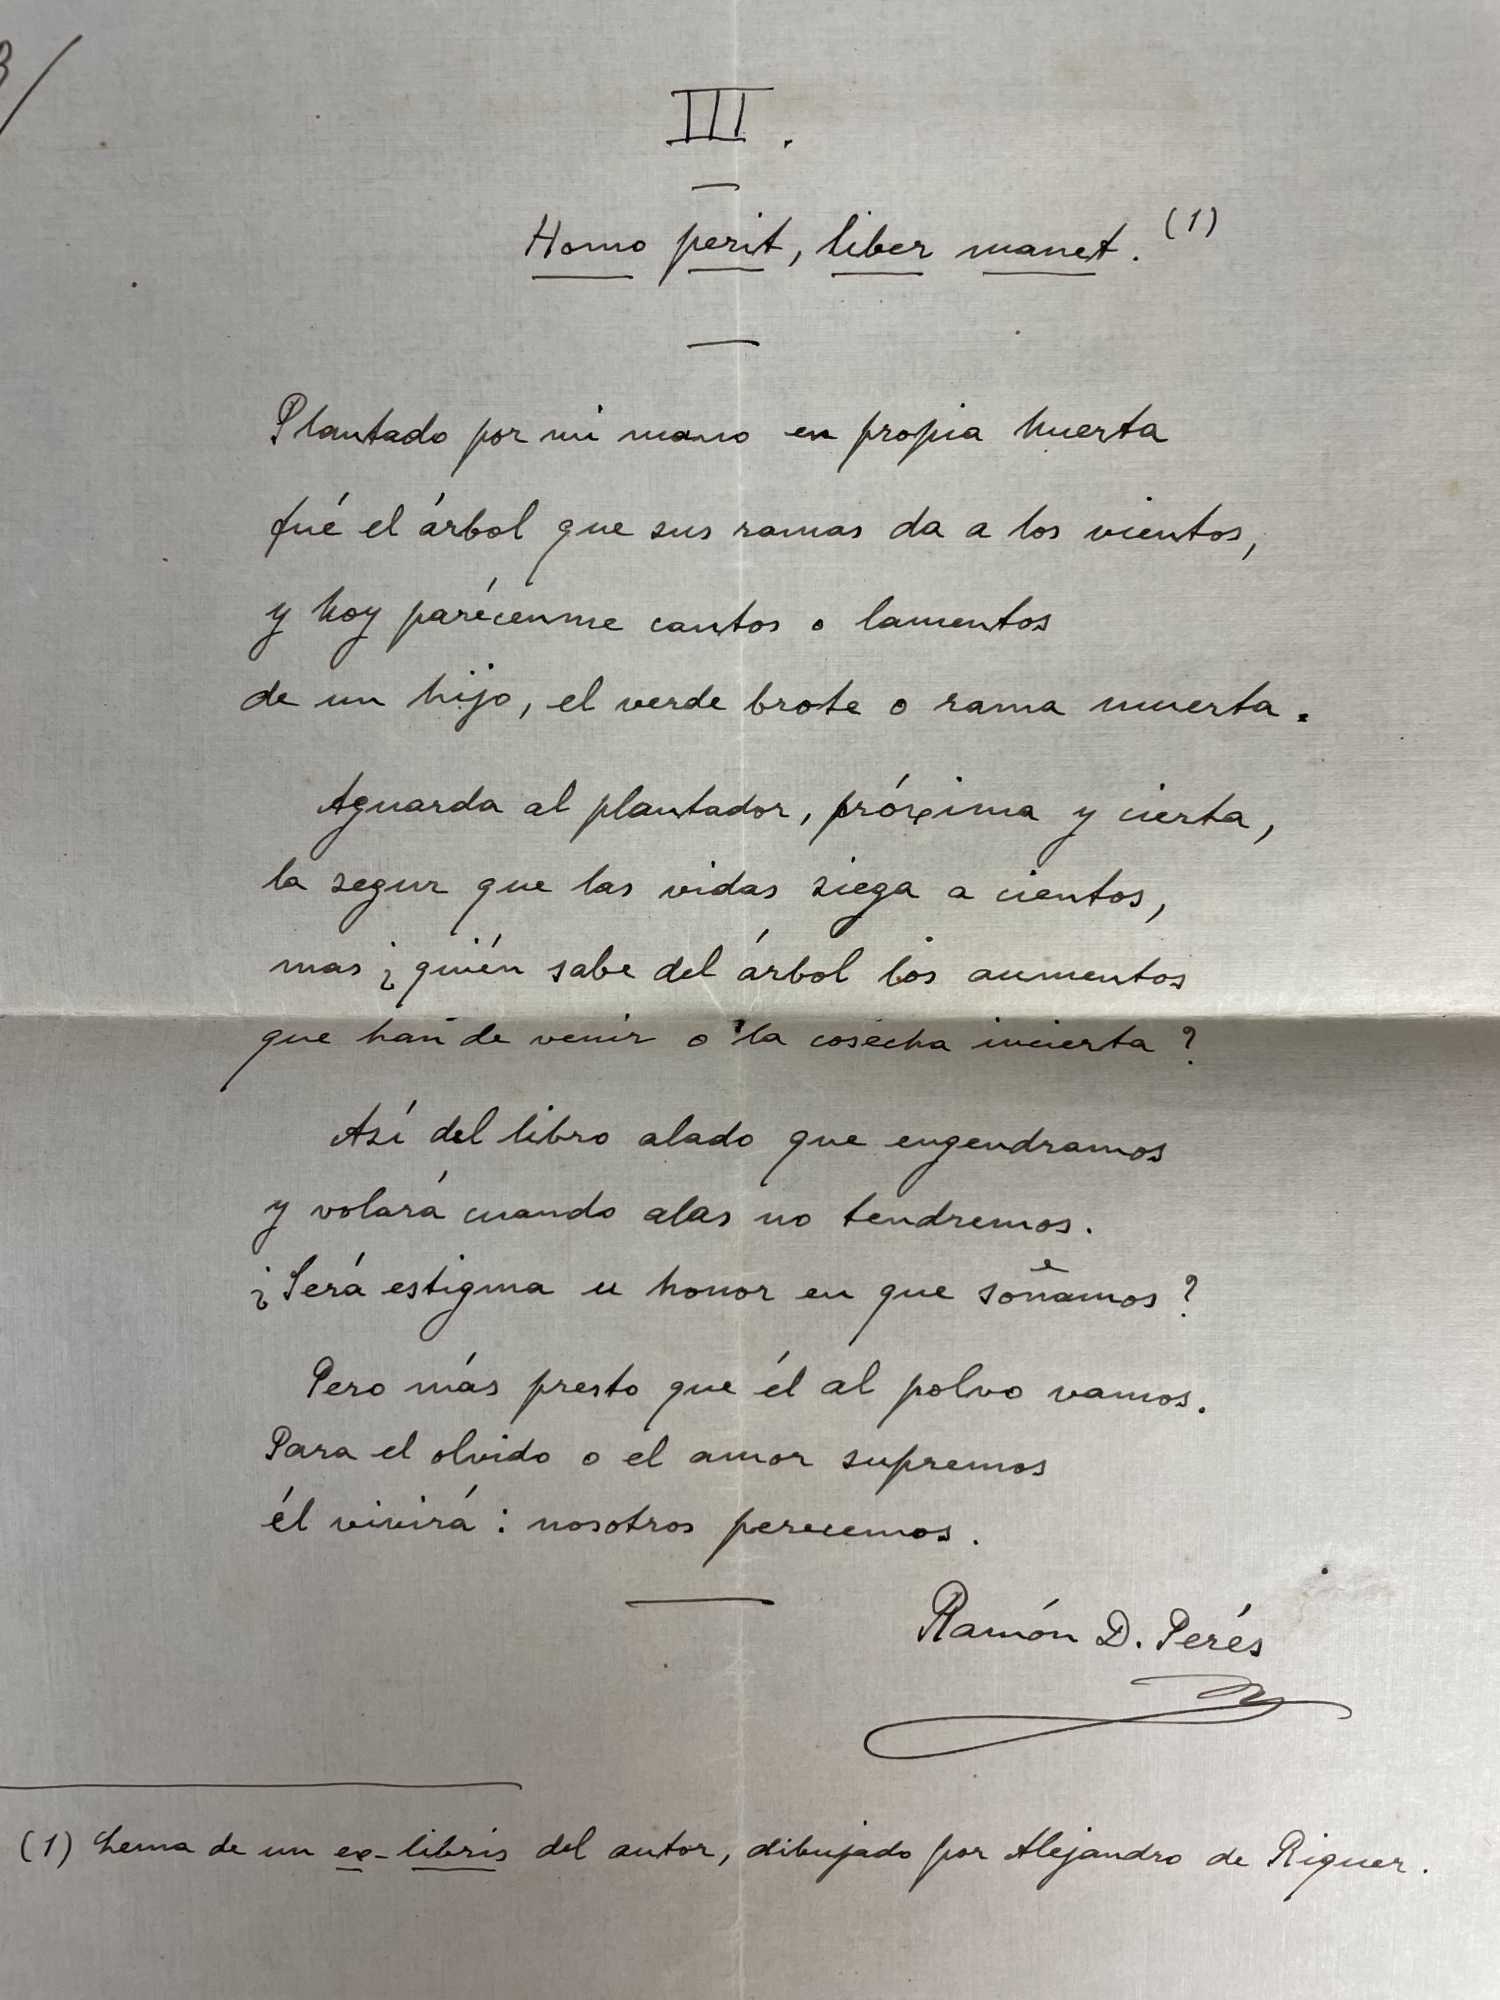 3/
III.
Homo perit, liber manet. (1)
Plantado por mi mano en propia huerta
fué el árbol que sus ramas da a los vientos,
y hoy parécenme cantos o lamentos
de un hijo, el verde brote o rama muerta.
Aguarda al plantador, próxima y cierta,
la segur que las vidas siega a cientos,
mas ¿quién sabe del árbol los aumentos
que han de venir o la cosecha incierta?
Así del libro alado que engendramos
y volará cuando alas no tendremos.
¿Será estigma u honor en que soñamos?
Pero más presto que él al polvo vamos.
Para el olvido o el amor supremos
él vivirá: nosotros perecemos.
Ramón D. Perés
(1) Lema de un ex-libris del autor, dibujado por Alejandro de Riquer.